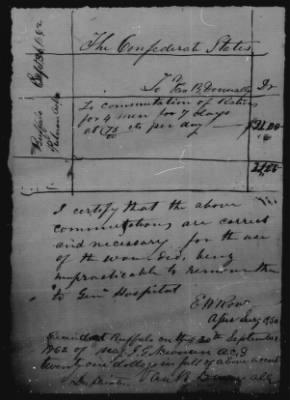 Sept 30/62
The Confederate States
To Van R. Donnally Dr
To commutation of Rations
for 4 men for 7 days
at 75 cts per day — $21.00
21.00
I certify that the above
commutations are correct
and necessary for the use
of the wounded, being
impracticable to remove them
to Genl Hospital
E W Row
Asst Surg
Received at Buffalo on the 30th September
1862 of
twenty one dollars in full of above account
Duplicates Van R Donnally